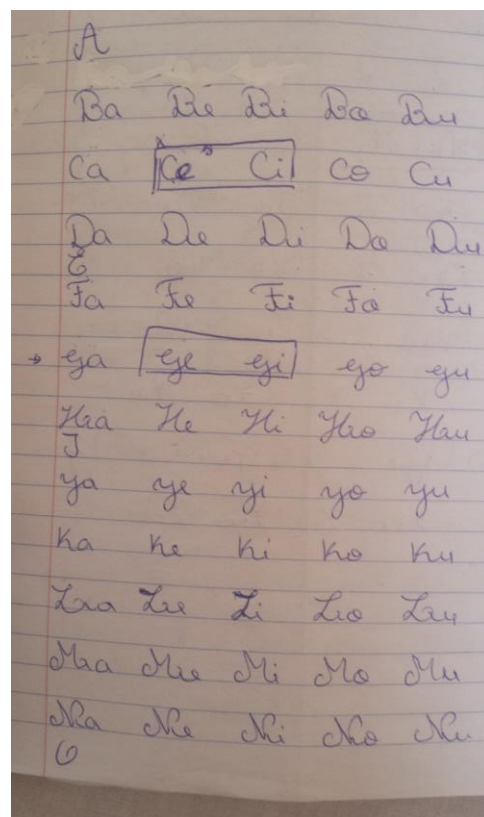 A
Ba Be Bi Bo Bu
Ca Ce Ci Co Cu
Da De Di Do Du
E
Fa Fe Fi Fo Fu
→ ga ge gi go gu
Ha He Hi Ho Hu
I
ya ye yi yo yu
Ka Ke Ki Ko Ku
La Le Li Lo Lu
Ma Me Mi Mo Mu
Na Ne Ni No Nu
O